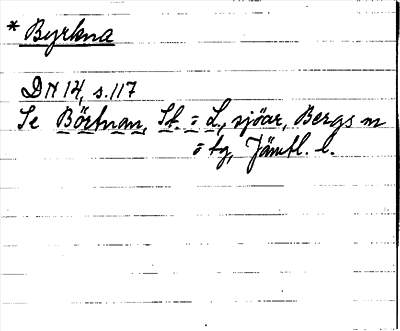 * Byrkna
DN 14, s. 117
Se Börtnan, St. = L., sjöar, Bergs sn
o tg, Jämtl. l.